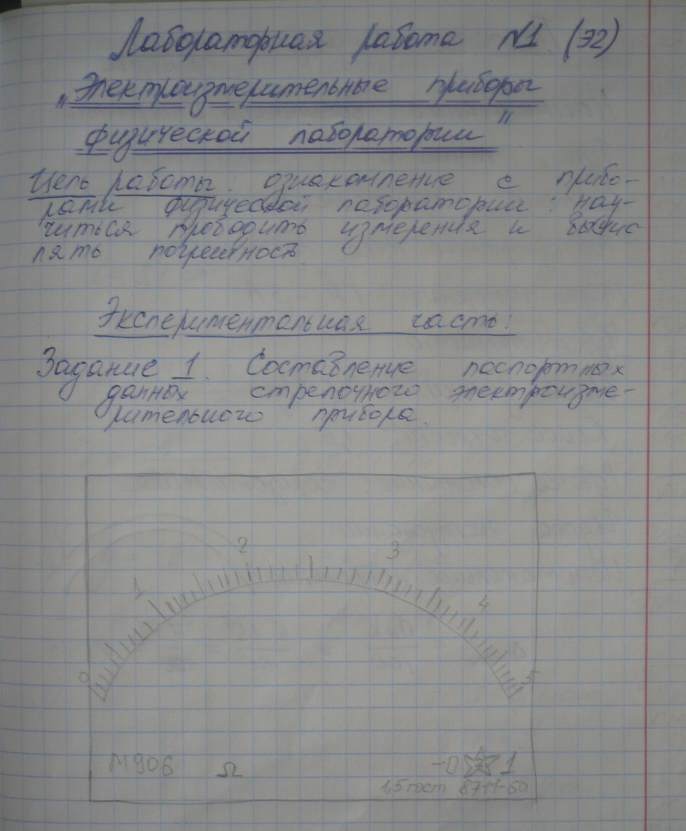 Лабораторная работа №1 (Э2)
„Электроизмерительные приборы
физической лаборатории"
Цель работы: ознакомление с прибо-
рами физической лаборатории: нау-
читься проводить измерения и вычис
лять погрешность
Экспериментальная часть:
Задание 1. Составление паспортных
данных стрелочного электроизме-
рительного прибора.
0 1 2 3 4 5
М906 Ω 1
1,5 гост 8711-60